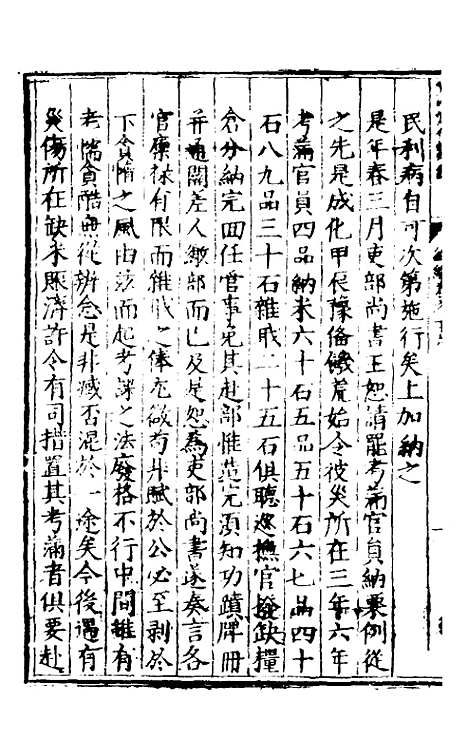 民利病自可次第施行矣上加納之
是年春三月吏部尚書王恕請罷考滿官員納粟例從
之先是成化甲辰豫備饑荒始令彼災所在三年六年
考滿官員四品納米六十石五品五十石六七品四十
石八九品三十石雜職二十五石俱聽巡撫官撥缺糧
倉分納完回任管事免其赴部惟造完須知功蹟牌冊
并通關差人繳部而已及是恕為吏部尚書遂奏言各
官廩祿有限而雜職之俸尤微苟非賦於公必至剥於
下貪隋之風由茲而起考課之法廢格不行中間雖有
老懦貪酷無從辨念是非臧否混於一途矣今後遇有
災傷所在缺米賑濟許令有司措置其考滿者俱要赴